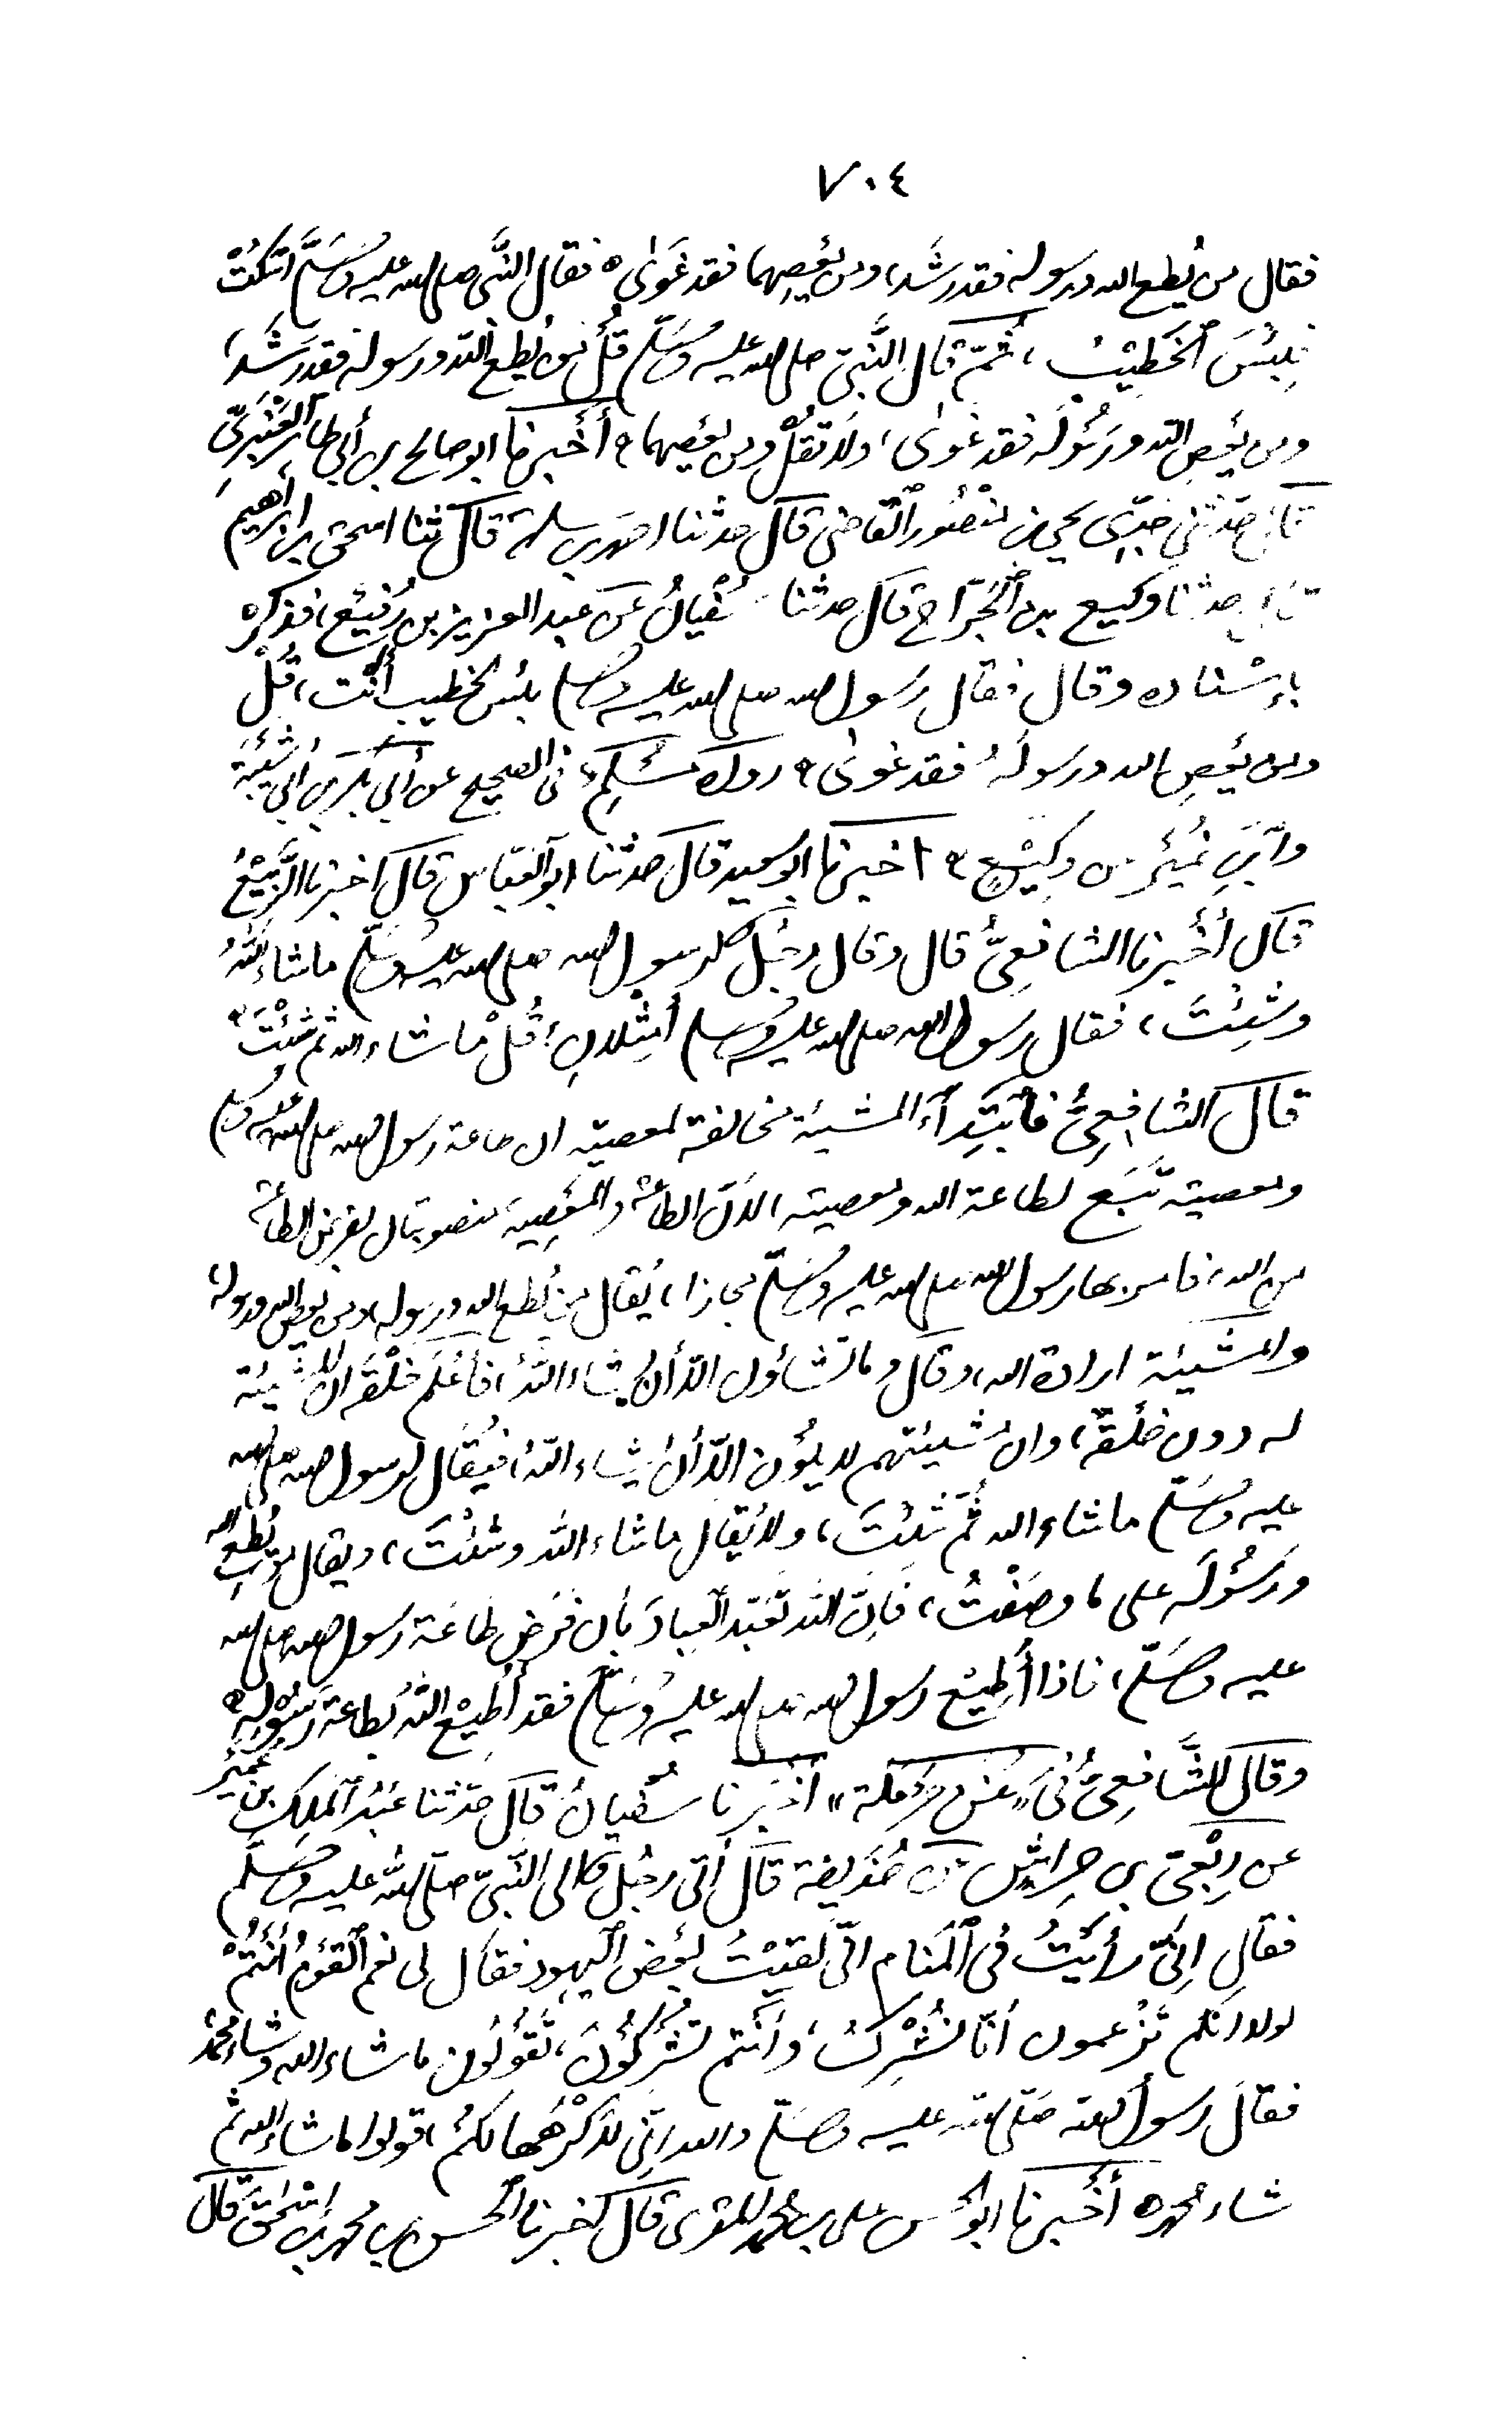 ٧٠٤
فقال من يُطع الله ورسوله فقد رشَد، ومن يعصِهما فقد غَوىٰ ٥ فقال النَّبى صلى الله عليه وَسَلَّم اسْكُتْ
فبِئسَ الخَطِيْبُ، ثُمّ قال النَّبىّ صلى الله عليه وَسَلّم قُلْ من يُطع اللّه ورسوله فقد رَشَد،
ومن يَعصِ اللّه ورَسُولَه فقد غوىٰ، ولا تقُلْ ومن يعصِهما ٥ أَخْبرنا ابو صالح بن أبى طاهر العَنْبَرىّ
قال حدّثنى جدّى يحيى بن منصُور القاضى قال حدثنا احمد بن سلمة قال ثنا اسحق بن ابرٰهيم
قال حدثنا وكيع بن الجَرّاح قال حدثنا سُفْيانُ عن عبد العزيز بن رُفَيْع، فذكره
بإسْناده وقال فقال رسول الله صلى الله عليه وسلم بئس الخطيب أنْت، قُلْ
ومن يَعصِ الله ورسولَهُ فقد غوىٰ ٥ رواه مُسْلِم، فى الصحيح عن أبى بكر بن ابى شَيْبَة
وابْنِ نُمَيْر عن وكِيْعٍ ٥ اخبرنا ابو سعيد قال حدثنا ابو العبّاس قال اخبرنا الرَّبِيْعُ
قال أخْبرنا الشافعِىُّ قال وقال رجُل لرسول الله صلى الله عليه وسلّم ما شاء اللّهُ
وشِئْتَ، فقال رسول الله صلى الله عليه وسلم أمِثْلانِ، قُلْ ما شاء الله ثم شِئْتَ ٥
قال الشافِعِىُّ فابْتِدآءُ المشيئة مخالفة لمعصيته لان طاعة رسول الله صلى الله عليه وسلم
ومعصيته تَبَع لطاعة الله ومعصيته، لانّ الطاعة والمَعْصِيَة منصوبتان بفرض الطاعة
من الله، فامر بها رسول الله صلى الله عليه وسَلّم فجاز ان يُقال من يُطع الله ورسوله، ومن يعص الله ورسوله،
والمشيئة ارادة الله، وقال وما تشاؤن الّا أن يشاء اللّهُ، فأعْلَم خَلْقَه ان المشيئة
له دون خَلْقه، وان مشيئتهم لا يكون الّا أن يشاء اللّهُ، فيُقال لرسول الله صلى الله
عليه وسَلّم ما شاء الله ثُمّ شِئْتَ، ولا يُقال ما شاء اللّه وشئْتَ، ويقال من يُطع الله
ورَسُولَه على ما وصَفْتُ، فإنّ اللّه تعَبّد العِبادَ بأن فرَض طاعَة رسول الله صلى الله
عليه وسَلّم، فاذا أُطِيْع رسول الله صلى الله عليه وسَلّم فقد أُطِيْع اللّهُ بطاعة رَسُوْله ٥
وقال الشَّافعِىُّ فى «سُنن حَرْمَلة» أخْبَرنا سُفيانُ قال حدّثنا عَبْدُ المَلِكِ بن عُمَيْر
عن رِبْعىّ بن حِراش عن حُذَيفة قال أتى رجُل الى النّبىّ صلّى الله عليه وسَلّم
فقال إنّى رأيْتُ فى المَنام انّى لَقيْتُ بعْض اليهود فقال لى نعم القوْمُ أنْتُمْ
لولا انكم تزْعمون أنّا نُشْرِكُ، وأنْتم تُشْرِكُوْنَ، تَقُوْلُون ما شاء الله وشاء محمّدٌ
فقال رسول الله صَلّى الله عليه وسَلّم والله انّى لأكْرَهُها لكُمْ، قولوا ما شاء الله ثم
شاء محمد ٥ أخْبرنا ابو الحسن على بن محمّد المقرى قال اخبرنا الحسن بن محمد بن اسْحٰق قال